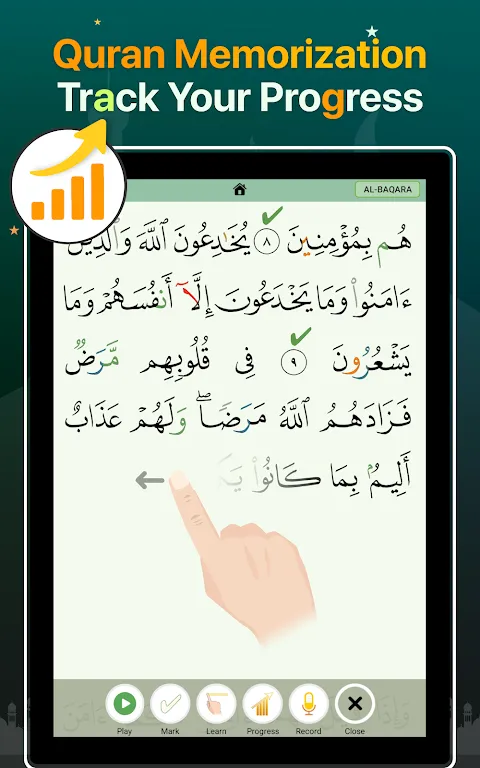 Quran Memorization
Track Your Progress
AL-BAQARA
هُم بِمُؤْمِنِينَ ٨ يُخَٰدِعُونَ ٱللَّهَ وَٱلَّذِينَ
ءَامَنُوا۟ وَمَا يَخْدَعُونَ إِلَّآ أَنفُسَهُمْ وَمَا
يَشْعُرُونَ ٩ فِى قُلُوبِهِم مَّرَضٌ
فَزَادَهُمُ ٱللَّهُ مَرَضًا ۖ وَلَهُمْ عَذَابٌ
أَلِيمٌۢ بِمَا كَانُوا۟
Play Mark Learn Progress Record Close